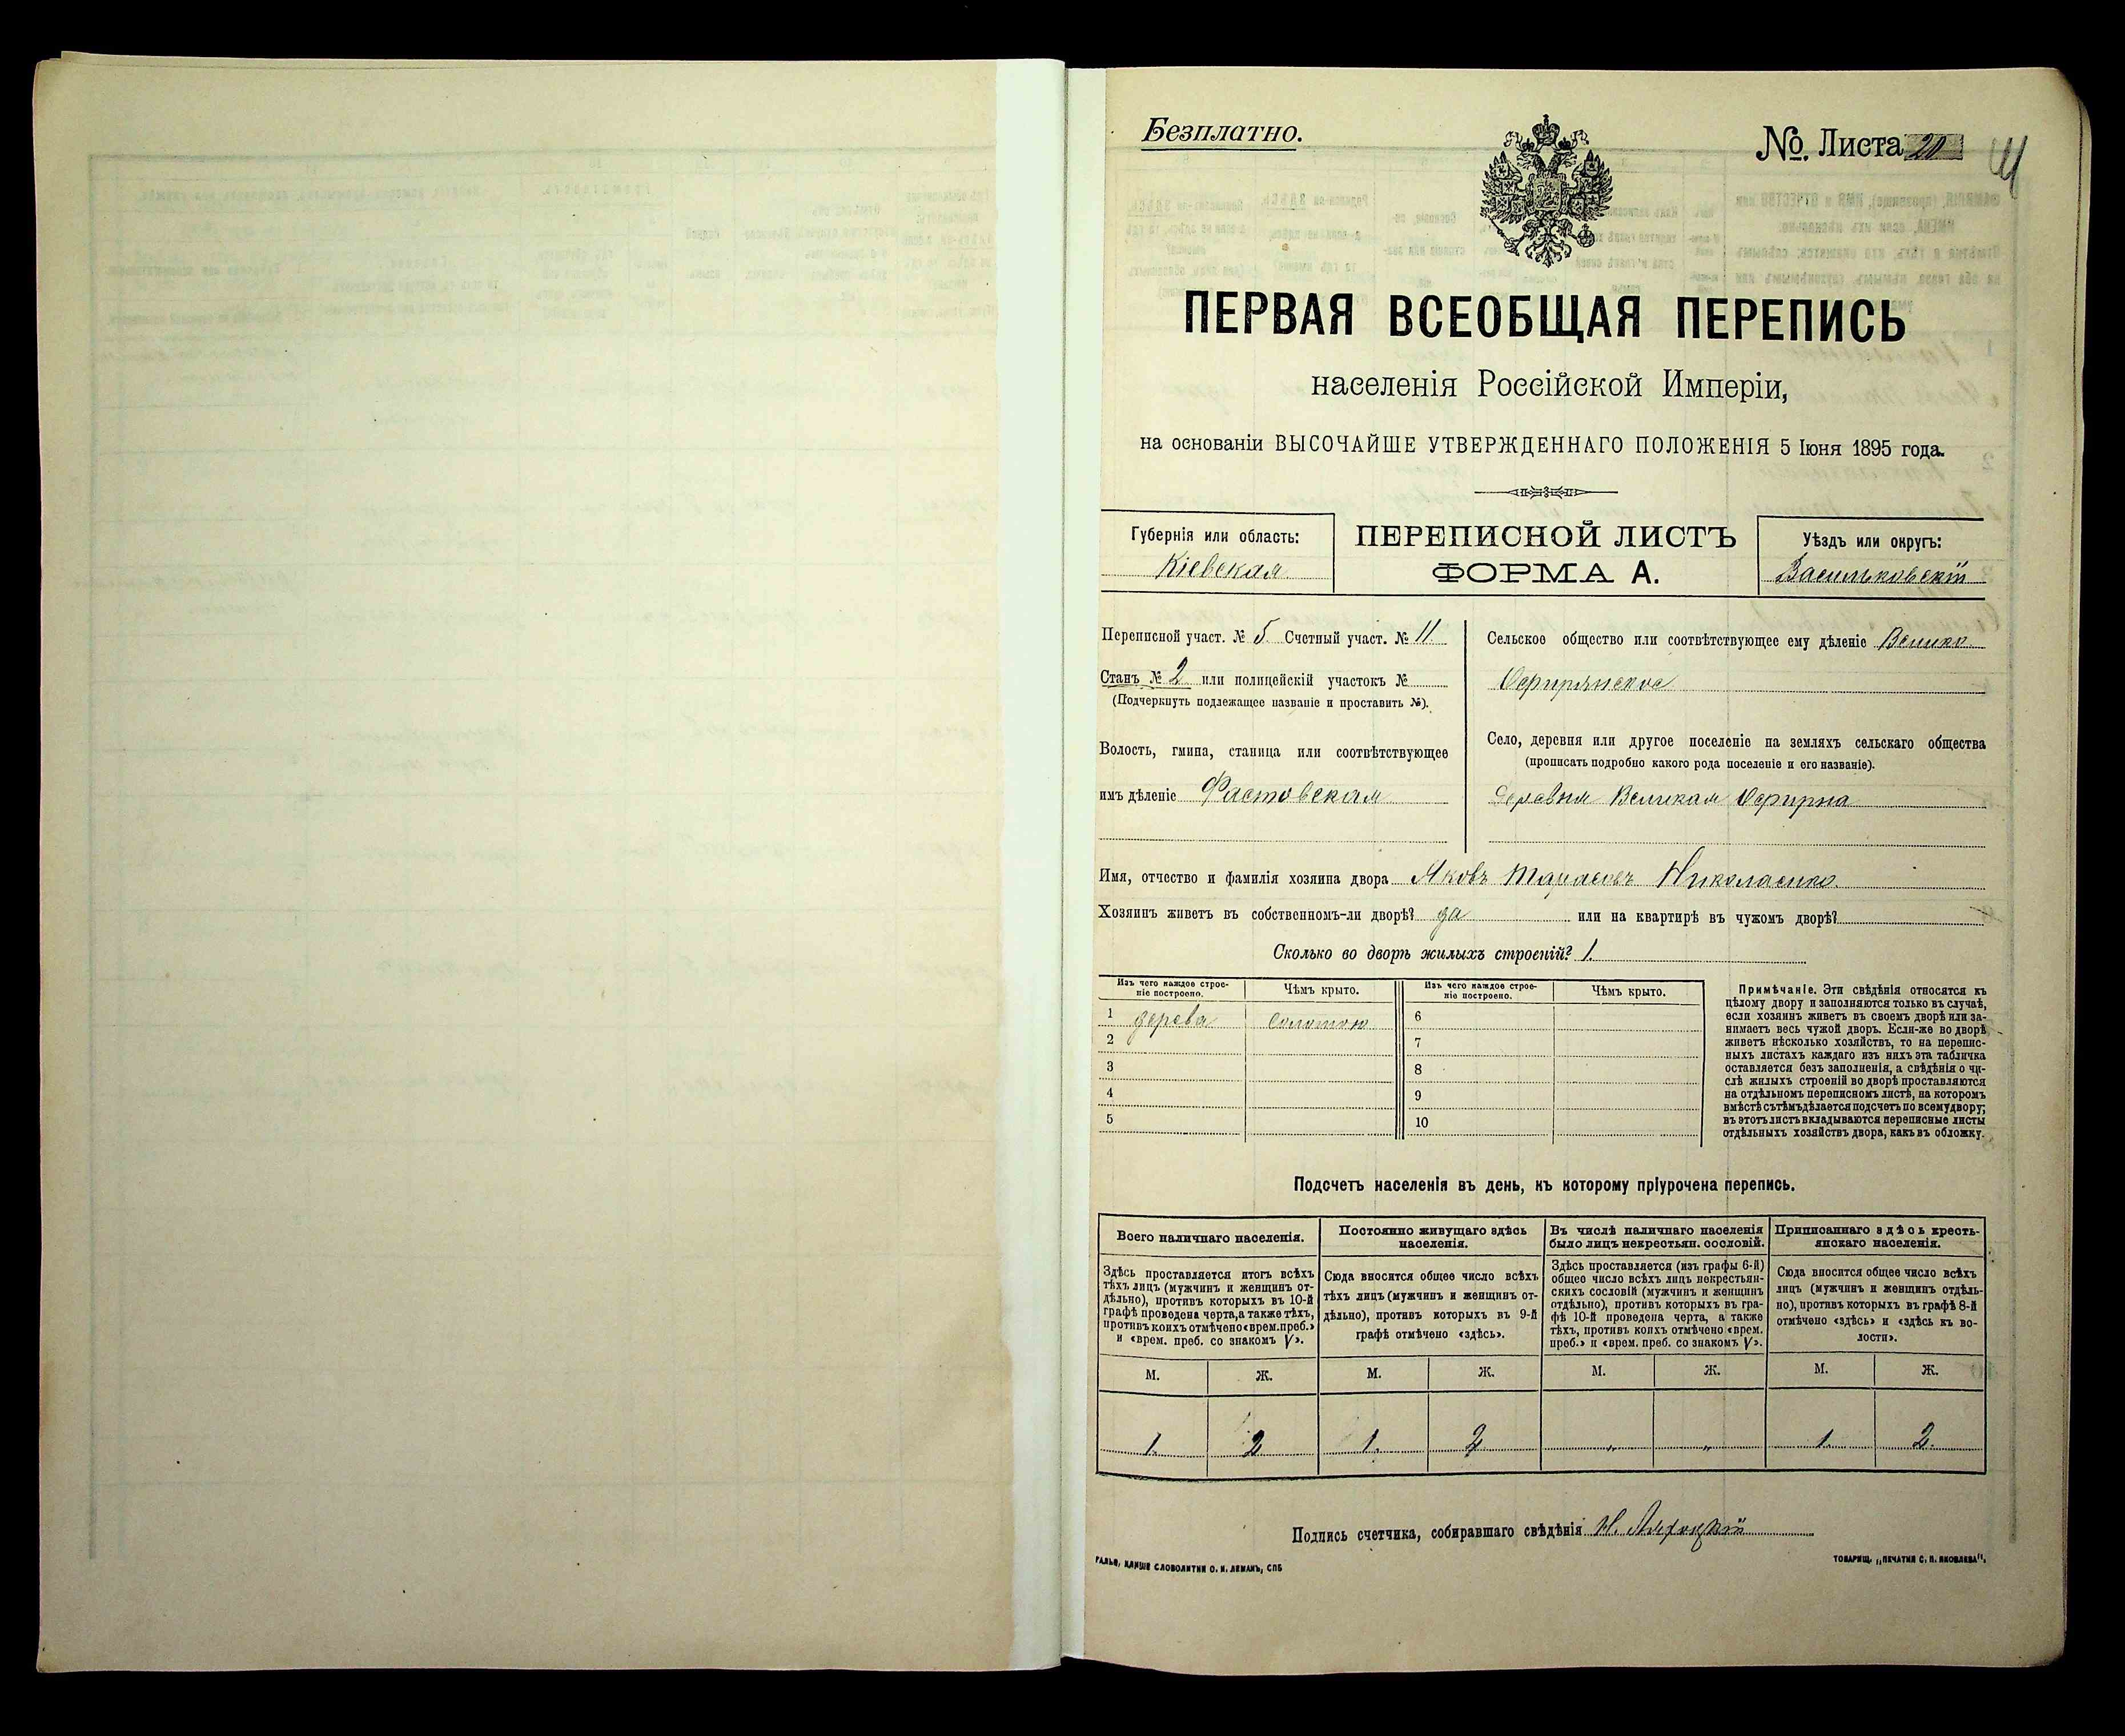 Безплатно.
№ Листа 20
ПЕРВАЯ ВСЕОБЩАЯ ПЕРЕПИСЬ
населенія Россійской Имперіи,
на основаніи ВЫСОЧАЙШЕ УТВЕРЖДЕННАГО ПОЛОЖЕНІЯ 5 Іюня 1895 года.
Губернія или область:
Кіевская
ПЕРЕПИСНОЙ ЛИСТЪ
ФОРМА А.
Уѣздъ или округъ:
Васильковскій
Переписной участ. № 5 Счетный участ. № 11
Станъ № 2 или полицейскій участокъ №
(Подчеркнуть подлежащее названіе и проставить №).
Волость, гмина, станица или соотвѣтствующее
имъ дѣленіе Фастовская
Сельское общество или соотвѣтствующее ему дѣленіе Велико
Офирянское
Село, деревня или другое поселеніе на земляхъ сельскаго общества
(прописать подробно какого рода поселеніе и его названіе).
деревня Великая Офирна
Имя, отчество и фамилія хозяина двора Яковъ Тарасовъ Николаенко
Хозяинъ живетъ въ собственномъ-ли дворѣ? да или на квартирѣ въ чужомъ дворѣ?
Сколько во дворѣ жилыхъ строеній? 1.
Изъ чего каждое строе-
ніе построено.
Чѣмъ крыто.
Изъ чего каждое строе-
ніе построено.
Чѣмъ крыто.
1 дерева соломою 6
2 7
3 8
4 9
5 10
Примѣчаніе. Эти свѣдѣнія относятся къ
цѣлому двору и заполняются только въ случаѣ,
если хозяинъ живетъ въ своемъ дворѣ или за-
нимаетъ весь чужой дворъ. Если-же во дворѣ
живетъ нѣсколько хозяйствъ, то на перепис-
ныхъ листахъ каждаго изъ нихъ эта табличка
оставляется безъ заполненія, а свѣдѣнія о чи-
слѣ жилыхъ строеній во дворѣ проставляются
на отдѣльномъ переписномъ листѣ, на которомъ
вмѣстѣ съ тѣмъ дѣлается подсчетъ по всему двору;
въ этотъ листъ вкладываются переписные листы
отдѣльныхъ хозяйствъ двора, какъ въ обложку.
Подсчетъ населенія въ день, къ которому пріурочена перепись.
Всего наличнаго населенія.
Здѣсь проставляется итогъ всѣхъ
тѣхъ лицъ (мужчинъ и женщинъ от-
дѣльно), противъ которыхъ въ 10-й
графѣ проведена черта, а также тѣхъ,
противъ коихъ отмѣчено «врем. преб.»
и «врем. преб. со знакомъ V».
Постоянно живущаго здѣсь
населенія.
Сюда вносится общее число всѣхъ
тѣхъ лицъ (мужчинъ и женщинъ от-
дѣльно), противъ которыхъ въ 9-й
графѣ отмѣчено «здѣсь».
Въ числѣ наличнаго населенія
было лицъ некрестьян. сословій.
Здѣсь проставляется (изъ графы 6-й)
общее число всѣхъ лицъ некрестьян-
скихъ сословій (мужчинъ и женщинъ
отдѣльно), противъ которыхъ въ гра-
фѣ 10-й проведена черта, а также
тѣхъ, противъ коихъ отмѣчено «врем.
преб.» и «врем. преб. со знакомъ V».
Приписаннаго здѣсь кресть-
янскаго населенія.
Сюда вносится общее число всѣхъ
лицъ (мужчинъ и женщинъ отдѣль-
но), противъ которыхъ въ графѣ 8-й
отмѣчено «здѣсь» и «здѣсь къ во-
лости».
М. Ж. М. Ж. М. Ж. М. Ж.
1. 2 1. 2 „ „ 1. 2.
Подпись счетчика, собиравшаго свѣдѣнія Н.
КЛИШЕ СЛОВОЛИТНИ О. И. ЛЕМАНЪ, СПБ
ТОВАРИЩ. „ПЕЧАТНЯ С. П. ЯКОВЛЕВА".